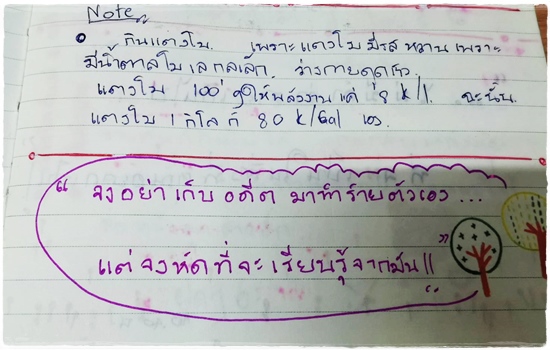 Note
กินแตงโม. เพราะแตงโมมีรส หวานเพราะ
มีน้ำตาลโมเลกุลเล็ก. ร่างกายดูดเร็ว
แตงโม 100 g ให้พลังงาน แค่ 8 k/l. ฉะนั้น.
แตงโม 1 กิโล ก็ 80 k/Gal เอง
“ จงอย่า เก็บ อดีต มาทำร้ายตัวเอง ...
แต่ จงหัดที่จะ เรียนรู้จากมัน!! ”